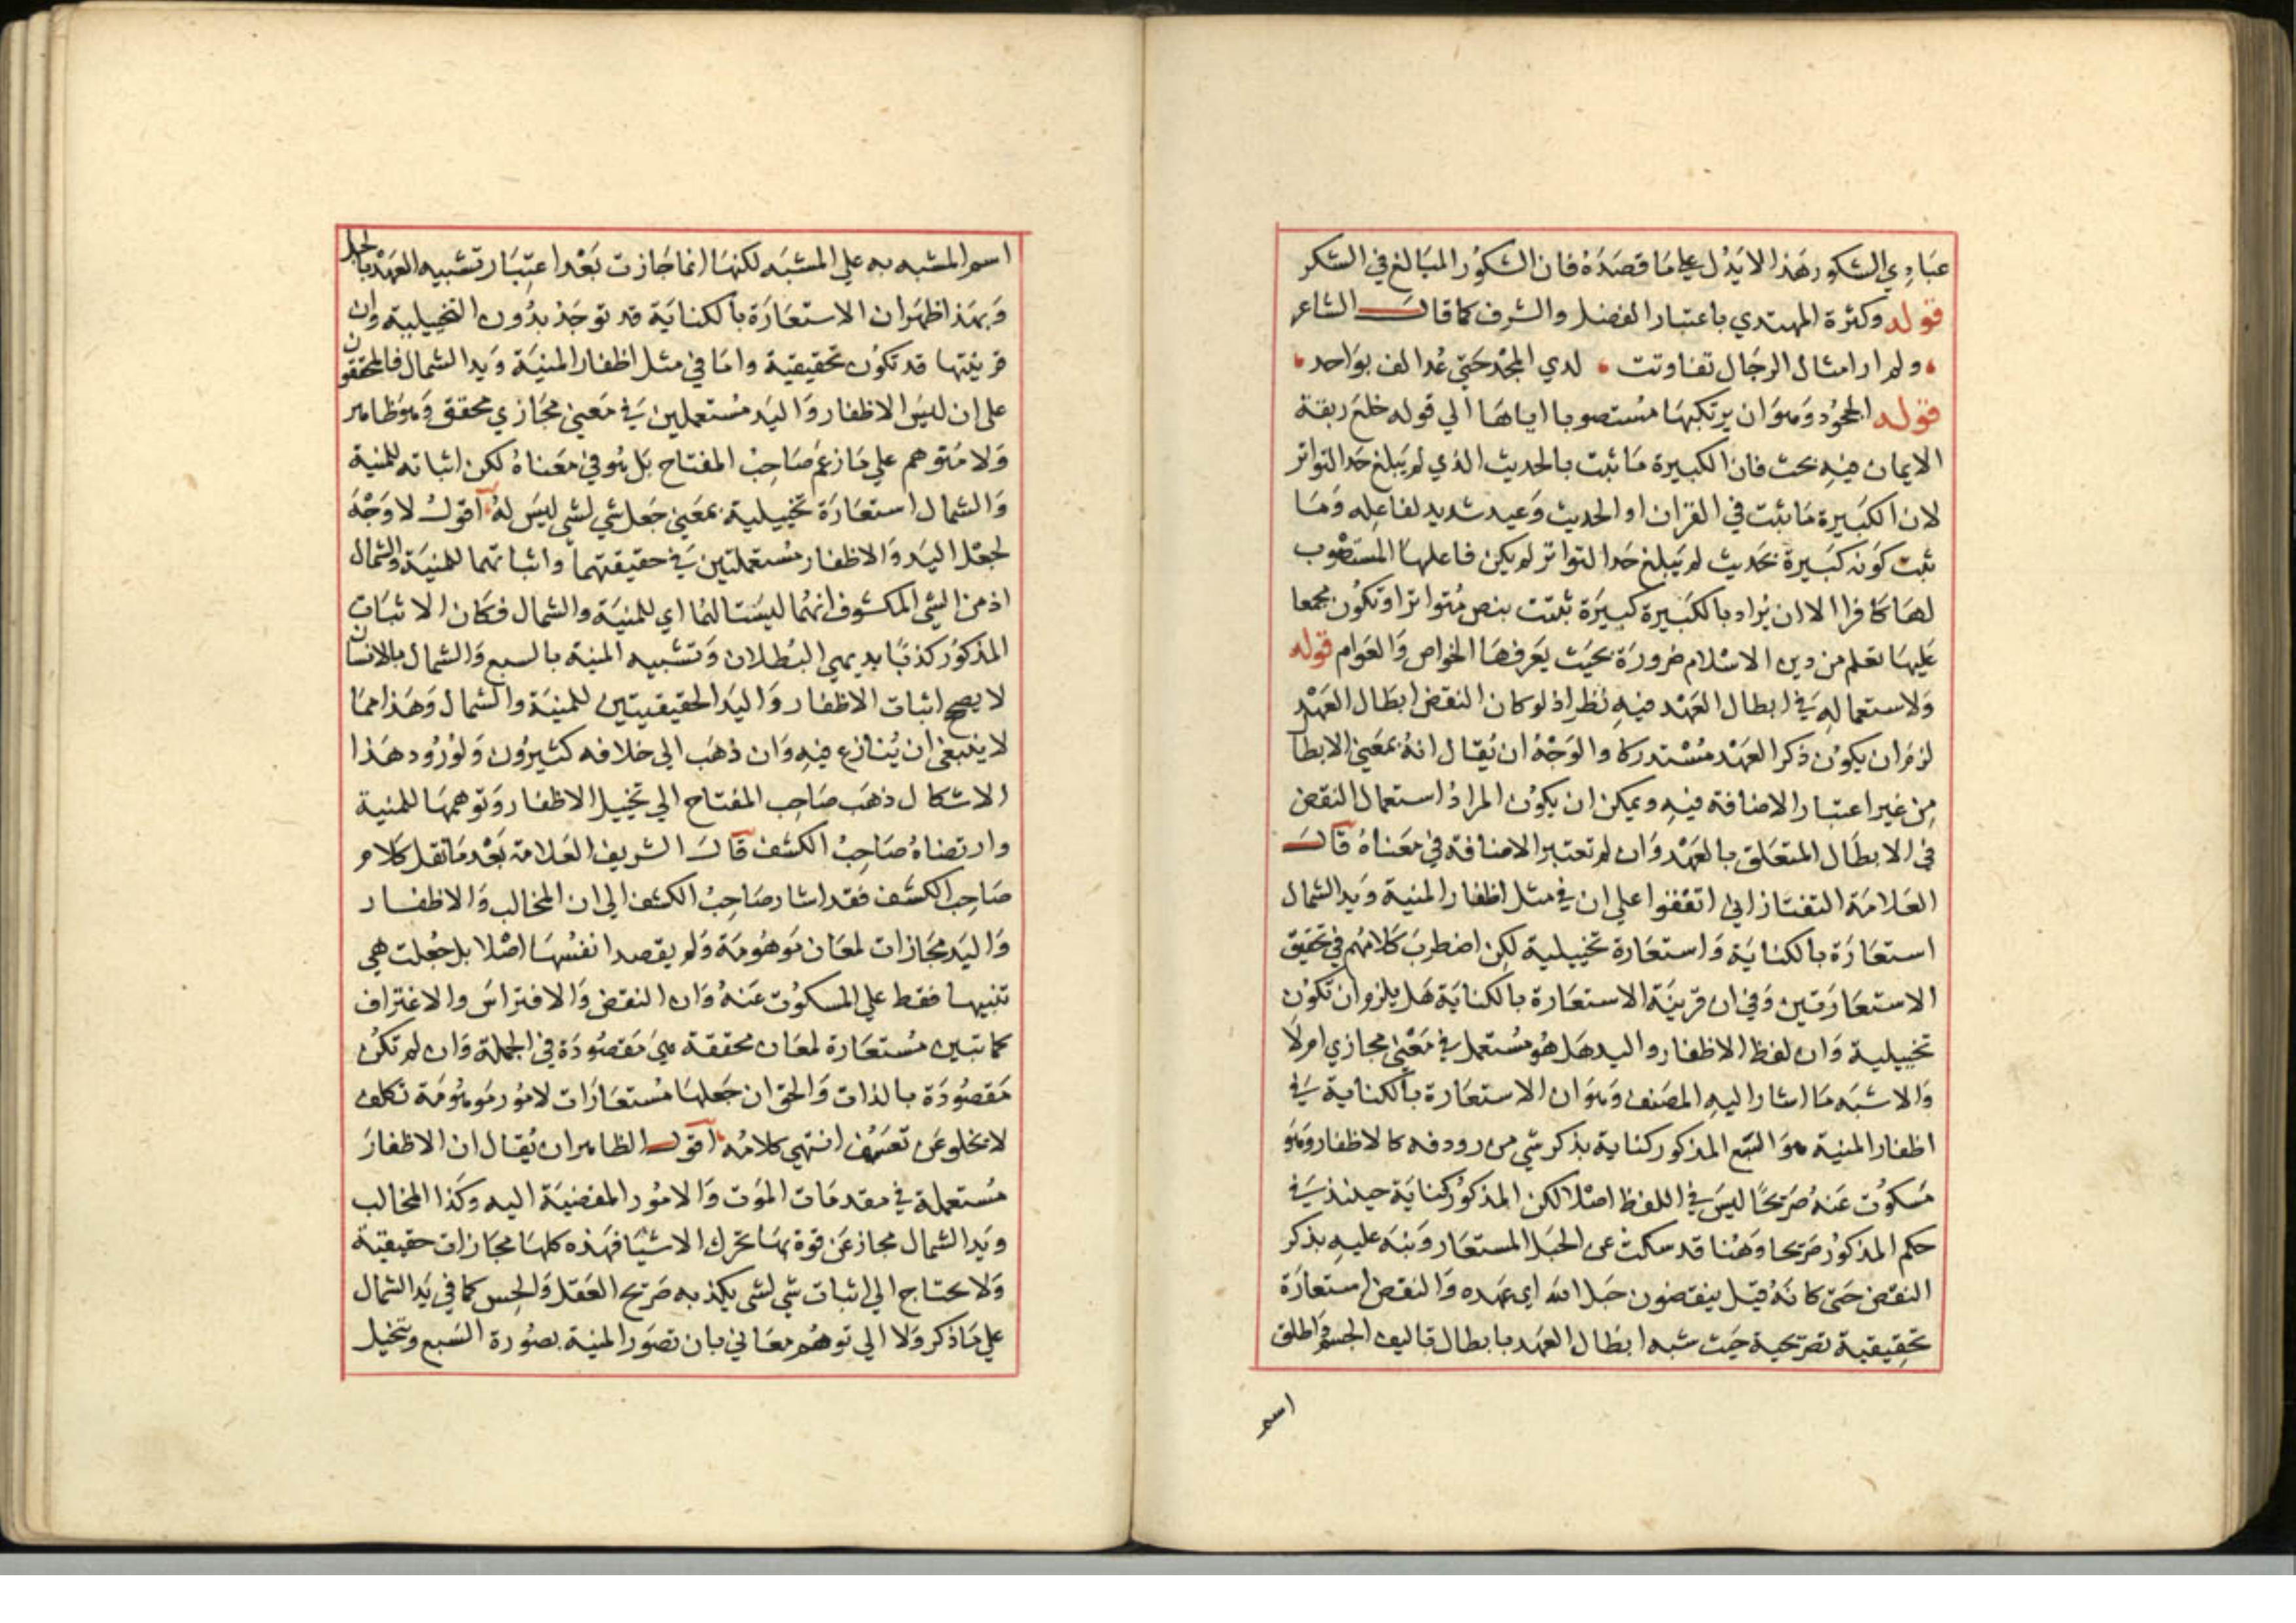 عبادي الشكور هذا لا يدل على ما قصده فان الشكور المبالغ في الشكر
قوله وكثرة المهتدي باعتبار الفضل والشرف كما قال الشاعر
ولم ار امثال الرجال تفاوتت لدي المجد حتى عد الف بواحد
قوله الجحود وهو ان يرتكبها مستصوبا اياها الي قوله خلع ربقة
الايمان فيه بحث فان الكبيرة ما ثبت بالحديث الذي لم يبلغ حد التواتر
لان الكبيرة ما ثبت في القران او الحديث وعيد شديد لفاعله وما
ثبت كونه كبيرة بحديث لم يبلغ حد التواتر لم يكن فاعلها المستصوب
لها كافرا الا ان يراد بالكبيرة كبيرة ثبتت بنص متواتر او تكون مجمعا
عليها تعلم من دين الاسلام ضرورة بحيث يعرفها الخواص والعوام قوله
ولاستعماله في ابطال العهد فيه نظر اذ لو كان النقض ابطال العهد
لزم ان يكون ذكر العهد مستدركا والوجه ان يقال انه بمعني الابطال
من غير اعتبار الاضافة فيه ويمكن ان يكون المراد استعمال النقض
في الابطال المتعلق بالعهد وان لم تعتبر الاضافة في معناه قال
العلامة التفتازاني اتفقوا علي ان في مثل اظفار المنية ويد الشمال
استعارة بالكناية واستعارة تخييلية لكن اضطرب كلامهم في تحقيق
الاستعارتين وفي ان قرينة الاستعارة بالكناية هل يلزم ان تكون
تخييلية وان لفظ الاظفار واليد هل هو مستعمل في معني مجازي ام لا
والاشبه ما اشار اليه المصنف وهو ان الاستعارة بالكناية في
اظفار المنية هو السبع المذكور كناية بذكر شي من رودفه كالاظفار وهو
مسكوت عنه صريحا ليس في اللفظ اصلا لكن المذكور كناية حينئذ في
حكم المذكور صريحا وهنا قد سكت عن الحبل المستعار ونبه عليه بذكر
النقض حتى كانه قيل ينقضون حبل الله اي عهده والنقض استعارة
تحقيقية تصريحية حيث شبه ابطال العهد بابطال تاليف الجسم واطلق
اسم
اسم المشبه به علي المشبه لكنها انما جازت بعد اعتبار تشبيه العهد بالحبل
وبهذا ظهر ان الاستعارة بالكناية قد توجد بدون التخييلية وان
قرينتها قد تكون تحقيقية واما في مثل اظفار المنية ويد الشمال فالمحققون
على ان ليس الاظفار واليد مستعملين في معني مجازي محقق وهو ظاهر
ولا متوهم علي ما زعم صاحب المفتاح بل هو في معناه لكن اثباته للمنية
والشمال استعارة تخييلية بمعني جعل شي لشي ليس له اقول لا وجه
لجعل اليد والاظفار مستعملتين في حقيقتهما واثباتهما للمنية والشمال
اذ من الشي المكشوف انهما ليستا لهما اي للمنية والشمال فكان الاثبات
المذكور كذبا بديهي البطلان وتشبيه المنية بالسبع والشمال بالانسان
لا يصح اثبات الاظفار واليد الحقيقيتين للمنية والشمال وهذا مما
لا ينبغي ان ينازع فيه وان ذهب الي خلافه كثيرون ولورود هذا
الاشكال ذهب صاحب المفتاح الي تخييل الاظفار وتوهمها للمنية
وارتضاه صاحب الكشف قال الشريف العلامة بعد ما نقل كلام
صاحب الكشف فقد اشار صاحب الكشف الي ان المخالب والاظفار
واليد مجازات لمعان موهومة ولم يقصد انفسها اصلا بل جعلت هي
تنبيها فقط علي المسكوت عنه وان النقض والافتراس والاغتراف
كما تبين مستعارة لمعان محققة هي مقصودة في الجملة وان لم تكن
مقصودة بالذات والحق ان جعلها مستعارات لامور موهومة تكلف
لا يخلو عن تعسف انتهي كلامه اقول الظاهر ان يقال ان الاظفار
مستعملة في مقدمات الموت والامور المفضية اليه وكذا المخالب
ويد الشمال مجاز عن قوة بها تحرك الاشيا فهذه كلها مجازات حقيقية
ولا يحتاج الي اثبات شي لشي يكذبه صريح العقل والحس كما في يد الشمال
علي ما ذكر ولا الي توهم معاني بان تصور المنية بصورة السبع وتخيل